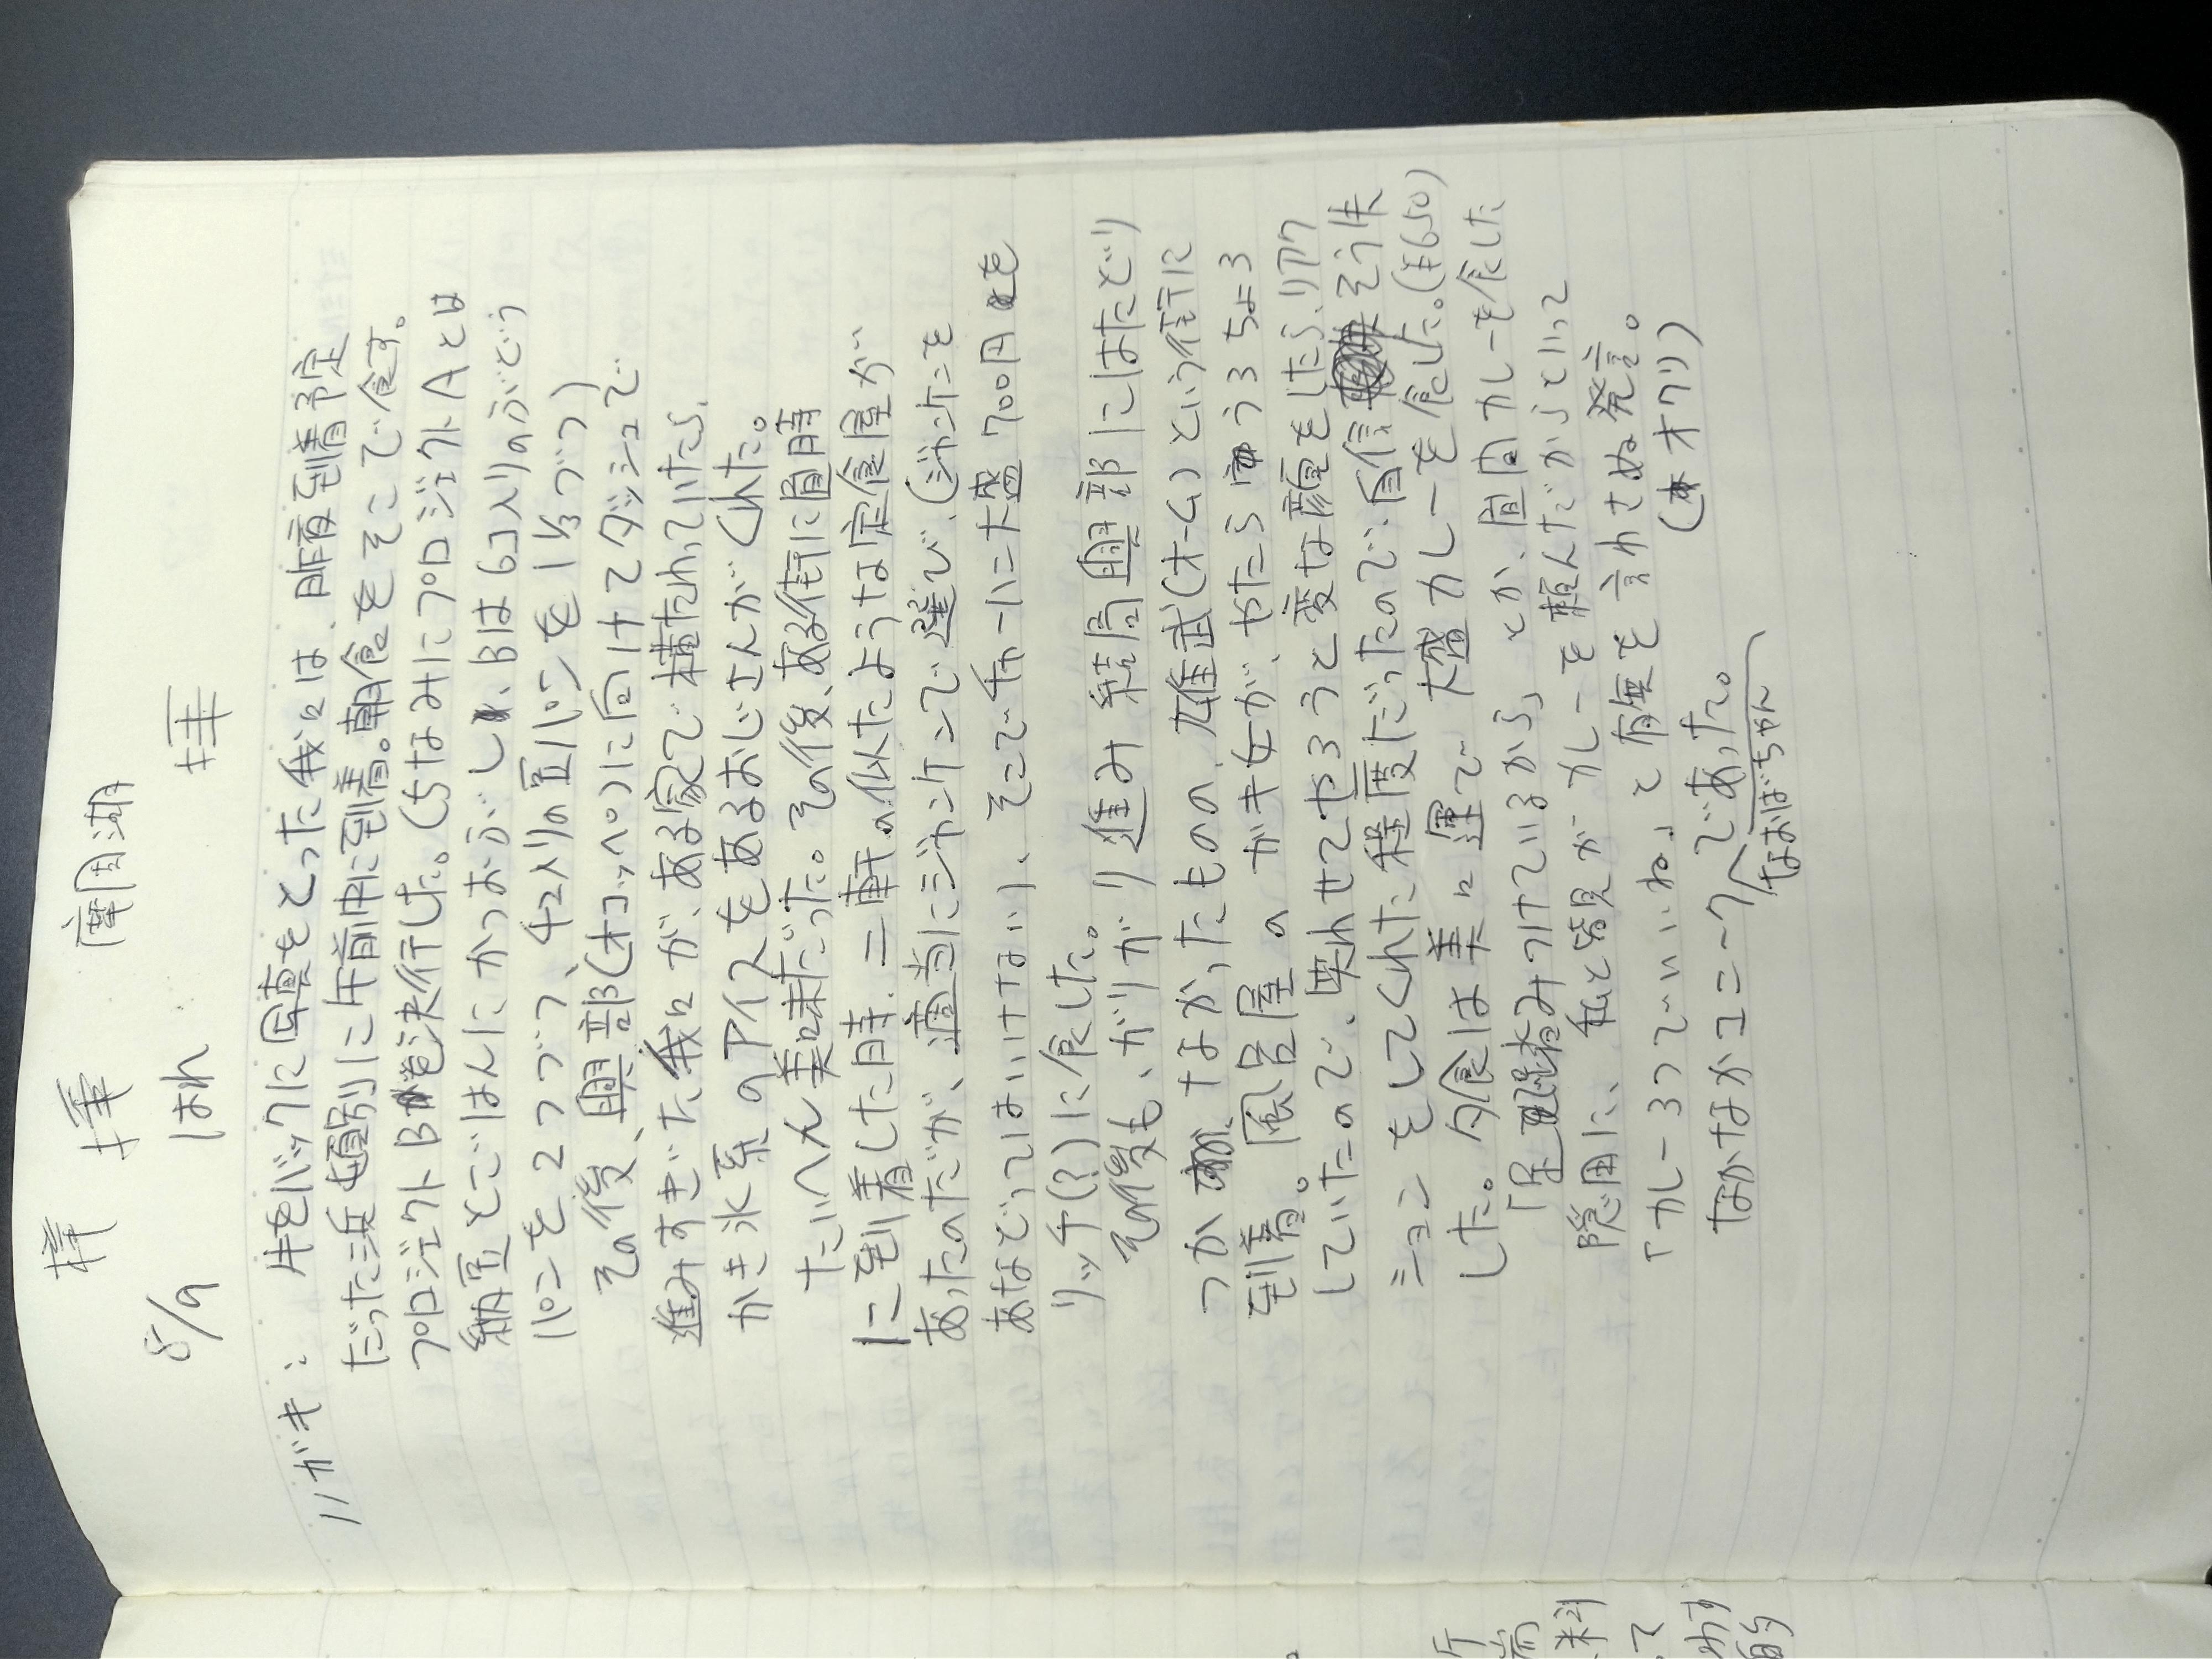 8/9 はれ 南周湖
ハガキ: 牛をバックに写真をとった我々は、昨夜到着予定
だった浜頓別に午前中に到着。朝食をそこで食す。
プロジェクトBを決行した。(ちなみにプロジェクトAとは
納豆とごはんにかつおぶし、Bは6コ入りのぶどう
パンを2つづつ、4コ入りの豆パンを1⅓づつ)
その後、興部(オコッペ)に向けてダッシュで
進みすぎた我々が、ある家で横たわっていたら、
かき氷系のアイスをあるおじさんがくれた。
たいへん美味だった。その後、ある街に昼時
に到着した時、二軒の似たような定食屋が
あったのだが、適当にジャンケンで選び、(ジャンケンも
あなどってはいけない)、そこでチャーハン大盛700円を
リッチ(?)に食した。
その後も、ガリガリ進み結局興部にはたどり
つかなかったものの、雄武(オーム)という街に
到着。風呂屋のガキ女が、やたらうろちょろ
していたので、笑わせてやろうと変な顔をしたら、リアク
ションをしてくれた程度だったので、自信をそう失
した。夕食は美々運で大盛カレーを食した。(¥650)
「足踏みつけているから」とか、昼間カレーを食した
隠周に、私と皆見がカレーを頼んだからといって
「カレー3つでいいね」と有無を言わさぬ発言。
なかなかユニークであった。 (オワリ)
なおばちゃん